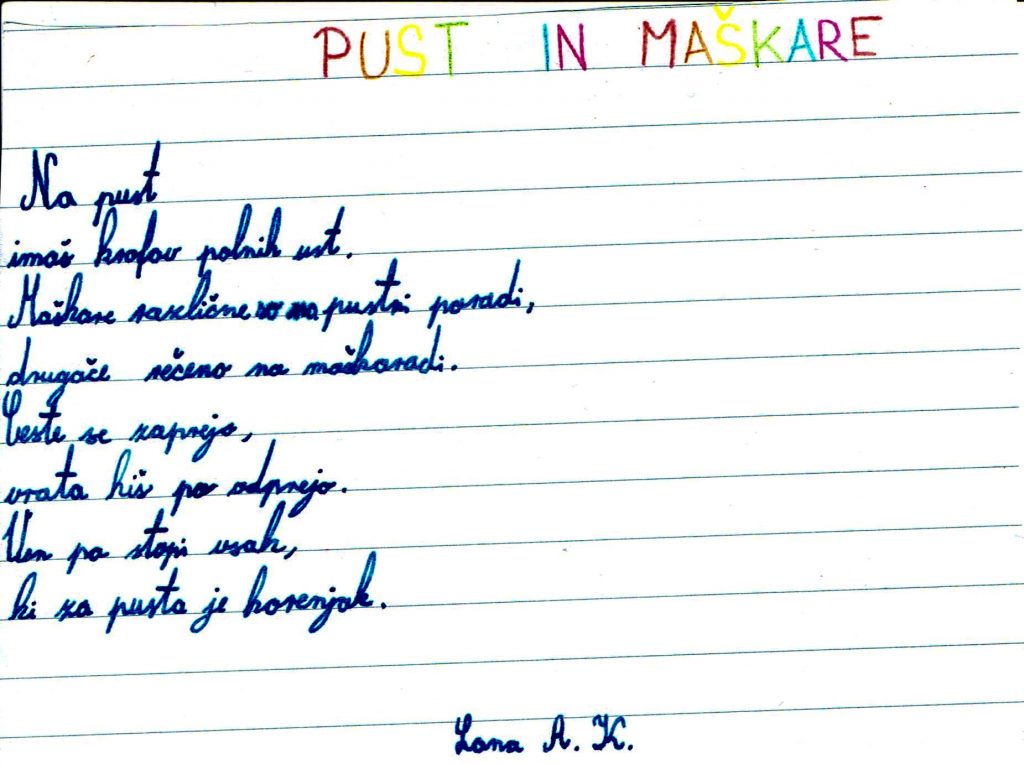 PUST IN MAŠKARE
Na pust
imaš krofov polnih ust.
Maškare različne so na pustni paradi,
drugače rečeno na maškaradi.
Ceste se zaprejo,
vrata hiš pa odprejo.
Ven pa stopi vsak,
ki za pusta je korenjak.
Lana A. K.